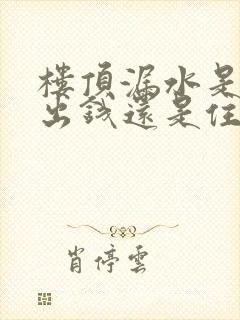 樓頂漏水是
出錢還是住
肖停雲